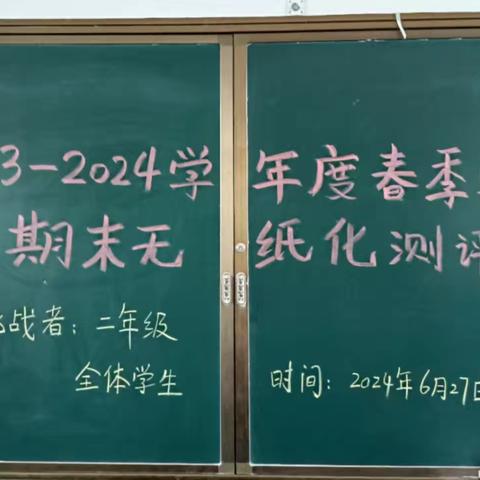 3-2024学年度春季
期末无纸化测评
战者：二年级
全体学生
时间：2024年6月27日